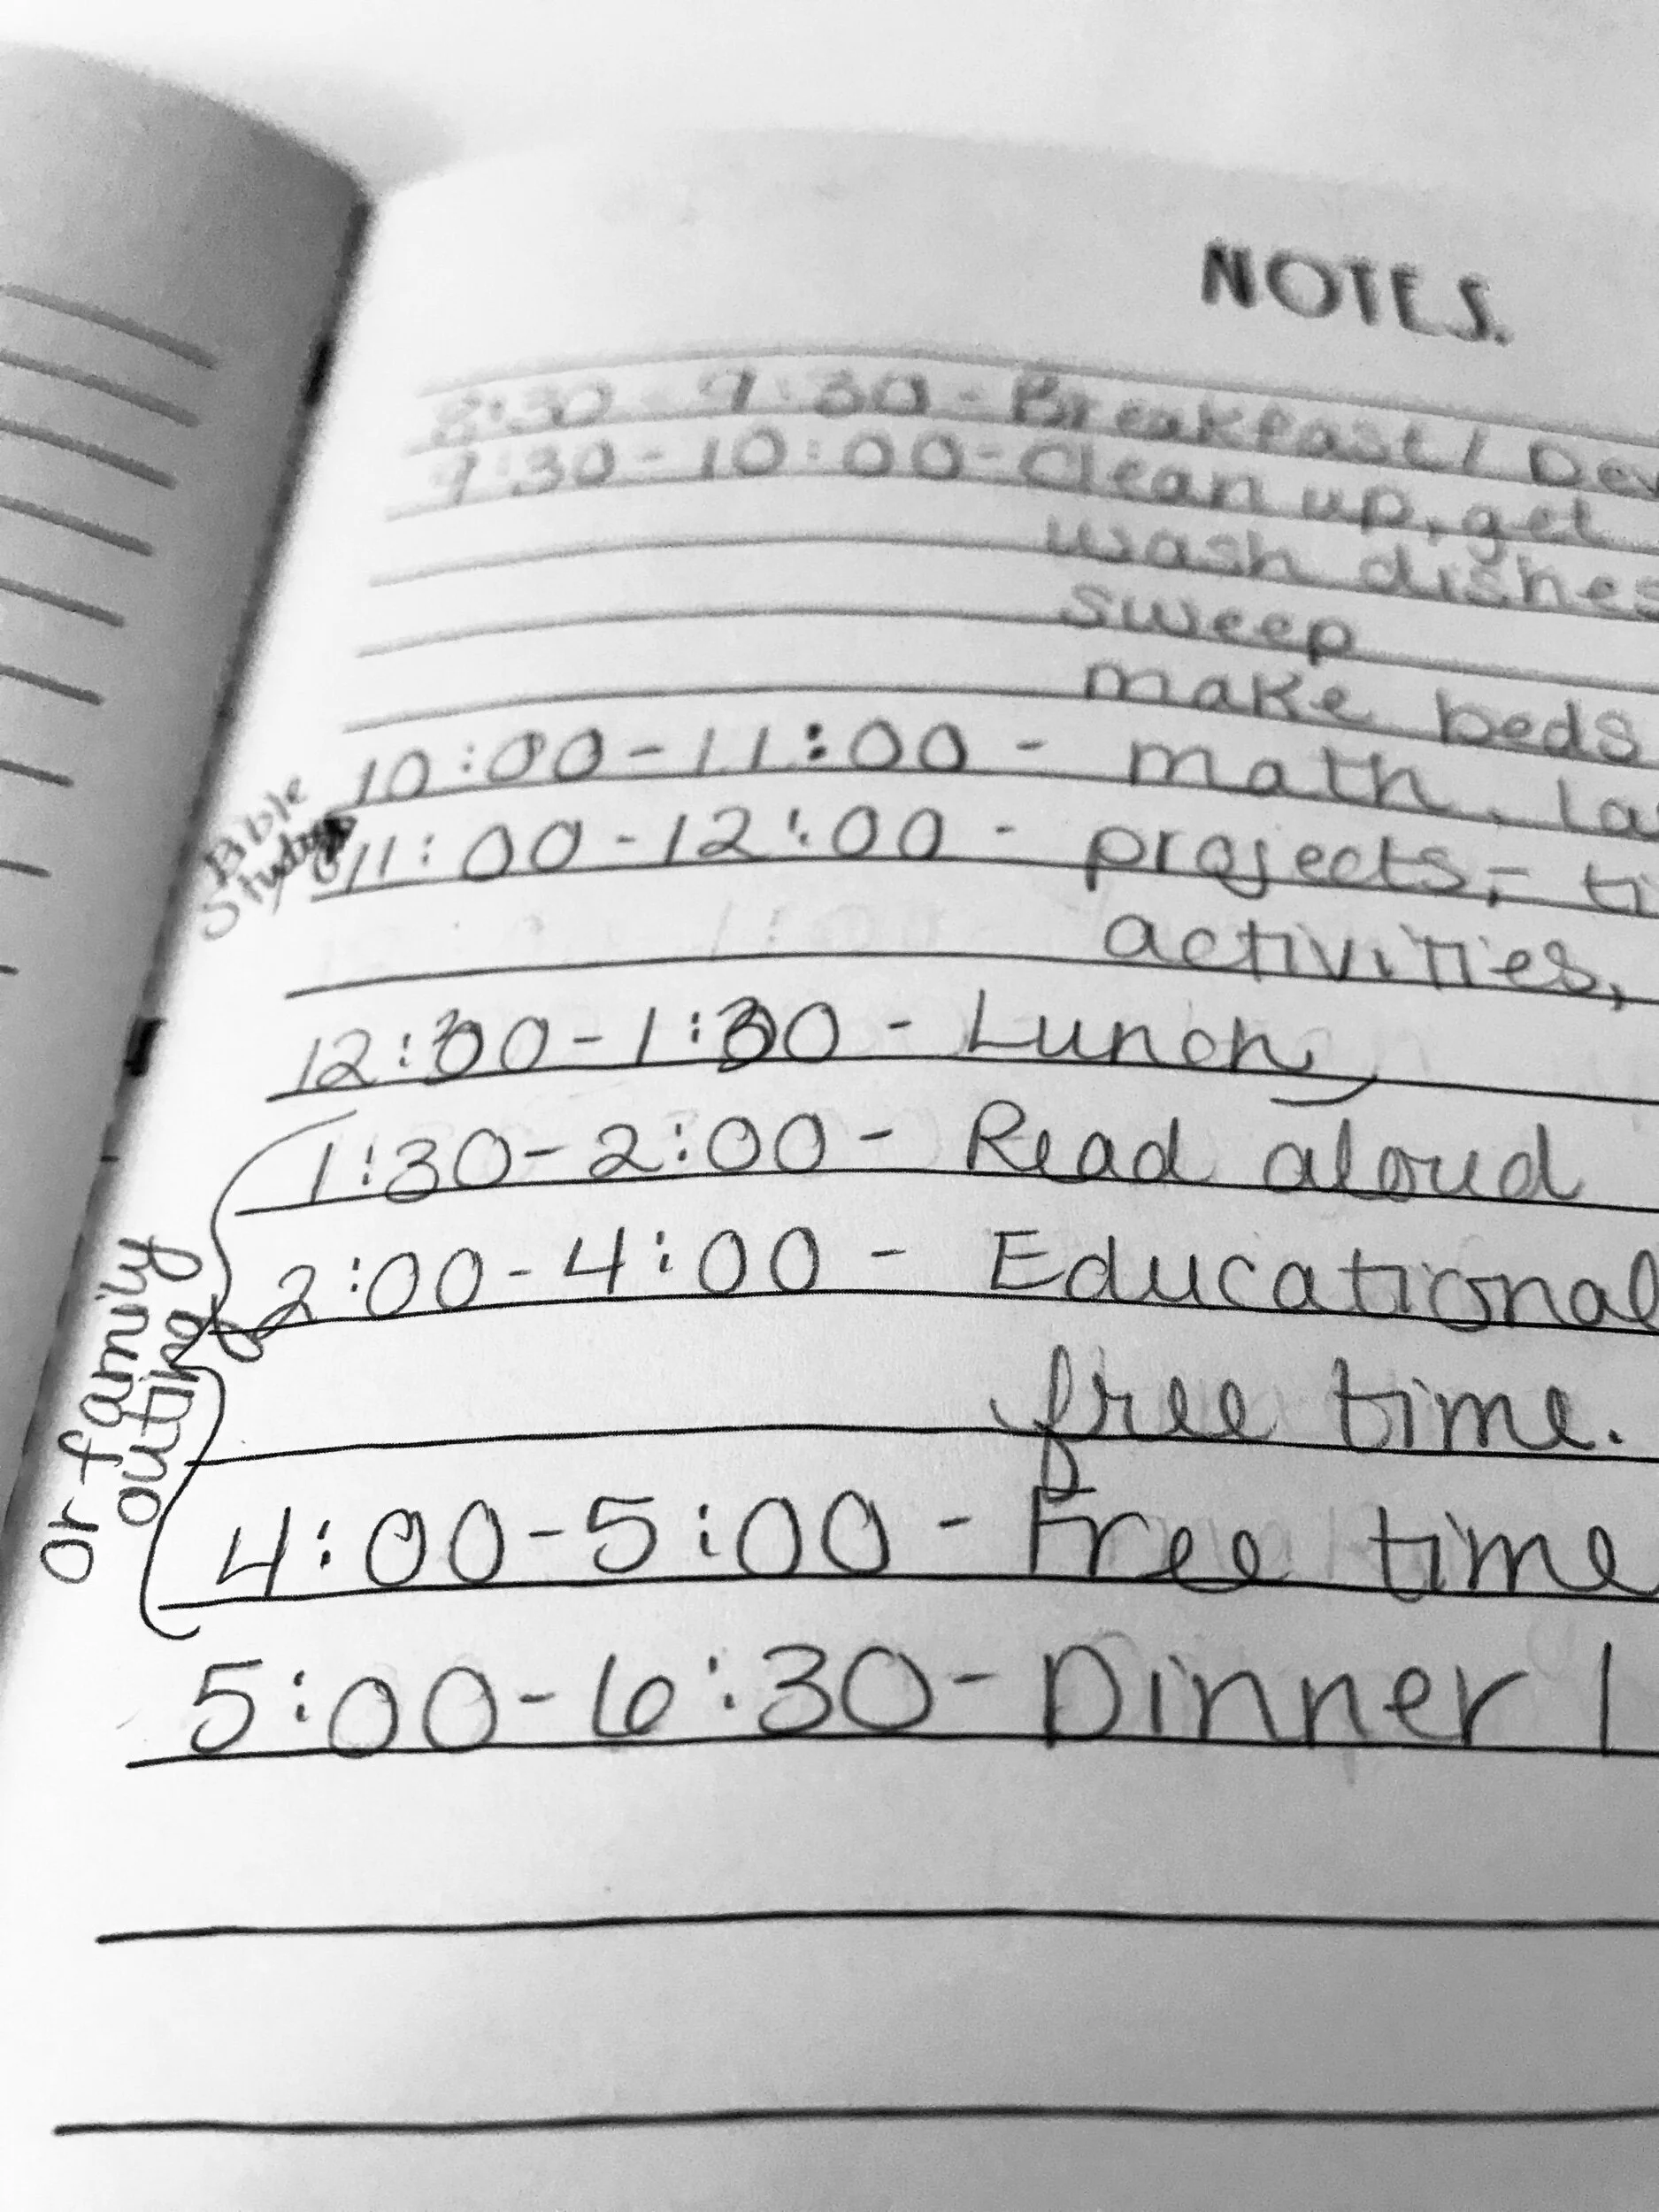 NOTES.
8:30 - 9:30 - Breakfast / Dev
9:30 - 10:00 - Clean up, get
wash dishes
sweep
make beds
10:00 - 11:00 - math, la
Bible
Study
11:00 - 12:00 - projects, - ti
activities,
12:30 - 1:30 - Lunch
1:30 - 2:00 - Read aloud
2:00 - 4:00 - Educational
free time.
or family
outing
4:00 - 5:00 - Free time
5:00 - 6:30 - Dinner |